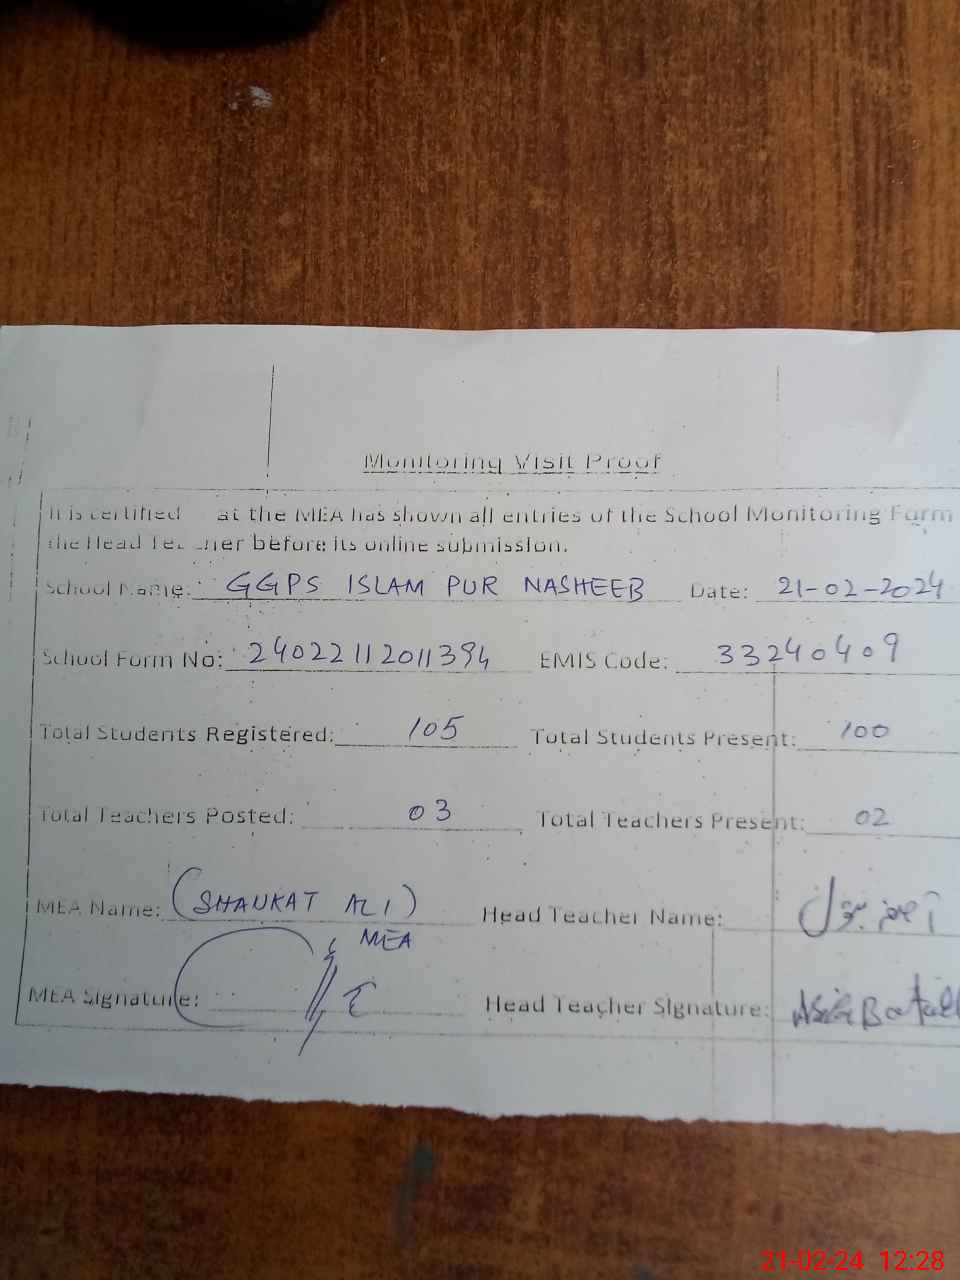 Monitoring Visit Proof
It is certified at the MEA has shown all entries of the School Monitoring Form
the Head Teacher before its online submission.
School Name: GGPS ISLAM PUR NASHEEB Date: 21-02-2024
School Form No: 24022112011394 EMIS Code: 33240409
Total Students Registered: 105 Total Students Present: 100
Total Teachers Posted: 03 Total Teachers Present: 02
MEA Name: (SHAUKAT ALI) Head Teacher Name:
MEA
MEA Signature: Head Teacher Signature:
21-02-24 12:28